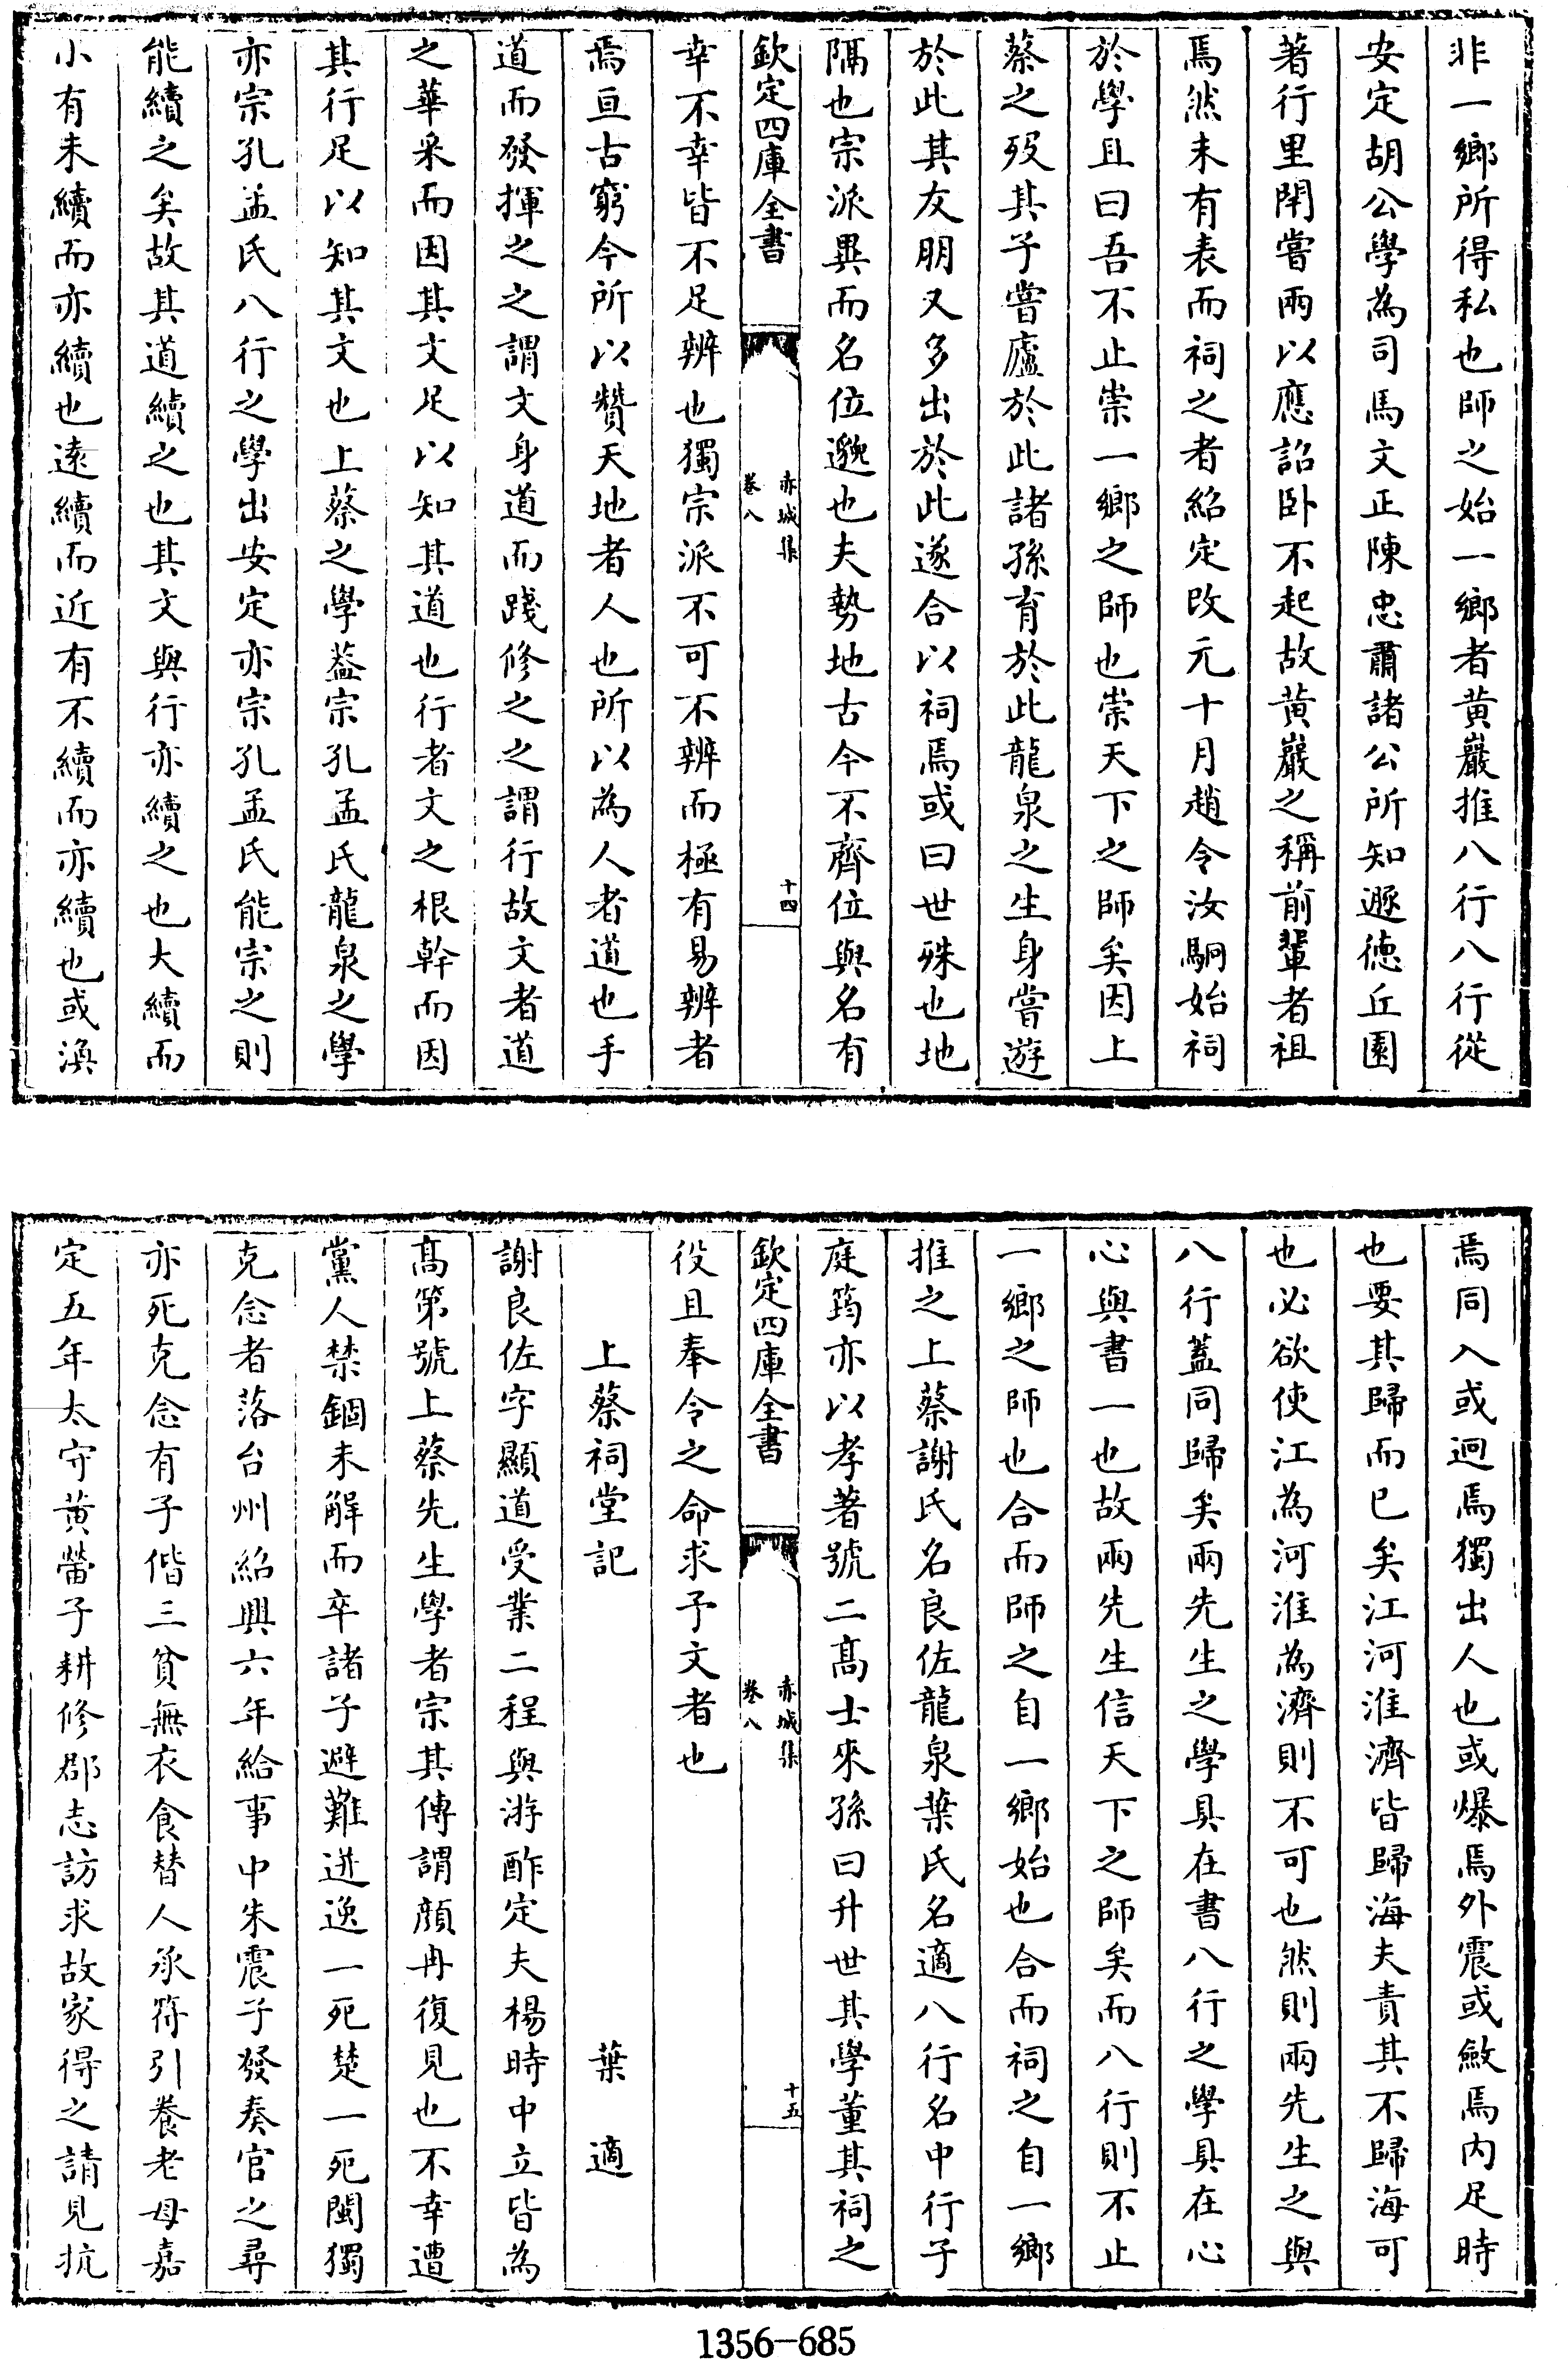 非一鄉所得私也師之始一鄉者黄巖推八行八行從
安定胡公學為司馬文正陳忠肅諸公所知遯徳丘園
著行里閈嘗兩以應詔卧不起故黄巖之稱前輩者祖
焉然未有表而祠之者紹定改元十月趙令汝駉始祠
於學且曰吾不止崇一鄉之師也崇天下之師矣因上
蔡之歿其子嘗廬於此諸孫育於此龍泉之生身嘗遊
於此其友朋又多出於此遂合以祠焉或曰世殊也地
隔也宗派異而名位邈也夫勢地古今不齊位與名有
欽定四庫全書
赤城集
卷八
十四
幸不幸皆不足辨也獨宗派不可不辨而極有易辨者
焉亘古窮今所以贊天地者人也所以為人者道也手
道而發揮之之謂文身道而踐修之之謂行故文者道
之華采而因其文足以知其道也行者文之根幹而因
其行足以知其文也上蔡之學葢宗孔孟氏龍泉之學
亦宗孔孟氏八行之學出安定亦宗孔孟氏能宗之則
能續之矣故其道續之也其文與行亦續之也大續而
小有未續而亦續也遠續而近有不續而亦續也或渙
焉同入或迥焉獨出人也或爆焉外震或斂焉内足時
也要其歸而已矣江河淮濟皆歸海夫責其不歸海可
也必欲使江為河淮為濟則不可也然則兩先生之與
八行蓋同歸矣兩先生之學具在書八行之學具在心
心與書一也故兩先生信天下之師矣而八行則不止
一鄉之師也合而師之自一鄉始也合而祠之自一鄉
推之上蔡謝氏名良佐龍泉葉氏名適八行名中行子
庭筠亦以孝著號二髙士來孫曰升世其學董其祠之
欽定四庫全書
赤城集
卷八
十五
役且奉令之命求予文者也
上蔡祠堂記
葉適
謝良佐字顯道受業二程與游酢定夫楊時中立皆為
髙第號上蔡先生學者宗其傳謂顔冉復見也不幸遭
黨人禁錮未解而卒諸子避難迸逸一死楚一死閩獨
克念者落台州紹興六年給事中朱震子發奏官之尋
亦死克念有子偕三貧無衣食替人承符引養老母嘉
定五年太守黄䇦子耕修郡志訪求故家得之請見抗
1356-685